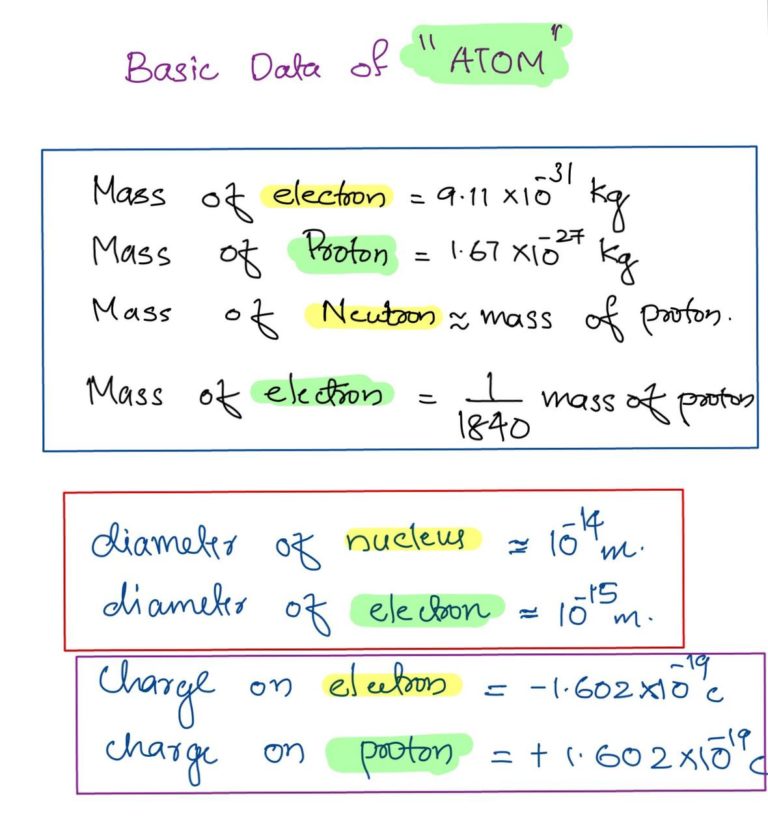 Basic Data of "ATOM"
Mass of electron = 9.11 ×10⁻³¹ kg
Mass of Proton = 1.67 ×10⁻²⁷ kg
Mass of Neutron ≈ mass of proton.
Mass of electron = 1/1840 mass of proton
diameter of nucleus ≈ 10⁻¹⁴ m.
diameter of electron ≈ 10⁻¹⁵ m.
Charge on electron = -1.602×10⁻¹⁹ c
charge on proton = + 1.602×10⁻¹⁹ c